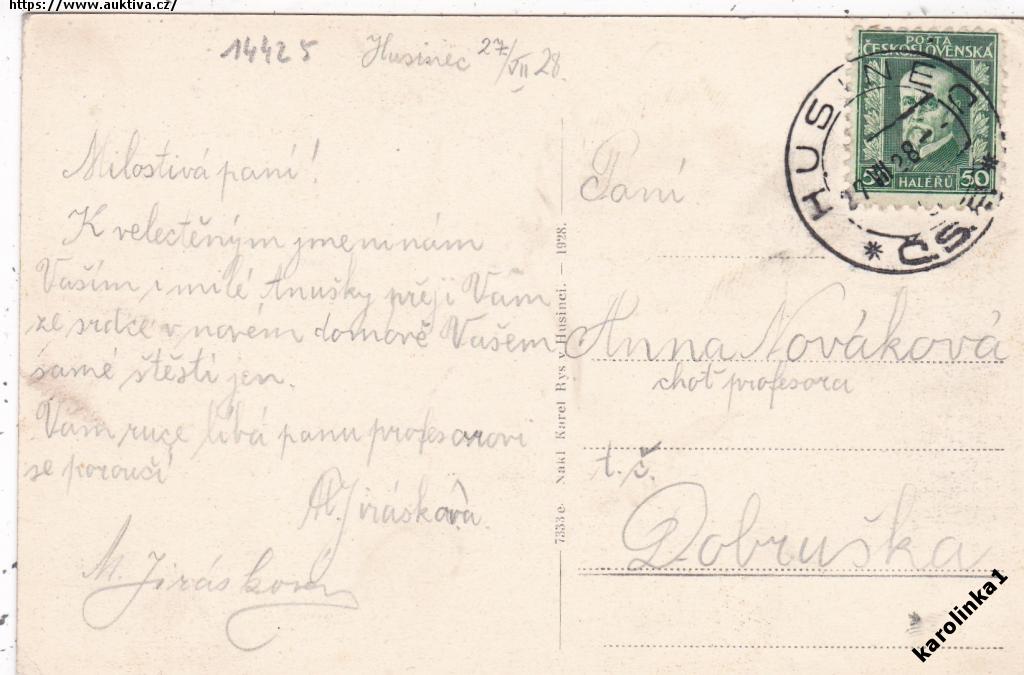 https://www.auktiva.cz/
14425
Husinec 27/VII 28.
Milostivá paní!
K velectěným jmeninám
Vaším i milé Anušky přeji Vám
ze srdce v novém domově Vašem
samé štěstí jen.
Vám ruce líbá panu profesorovi
se poroučí
Al. Jirásková.
M. Jirásková
7333e Nakl Karel Rys v Husinci. — 1928.
POŠTA
ČESKOSLOVENSKÁ
50 HALÉŘŮ 50
HUSINEC
27.VII.28
ČSR
Paní
Anna Nováková
choť profesora
t.č.
Dobruška
karolinka1